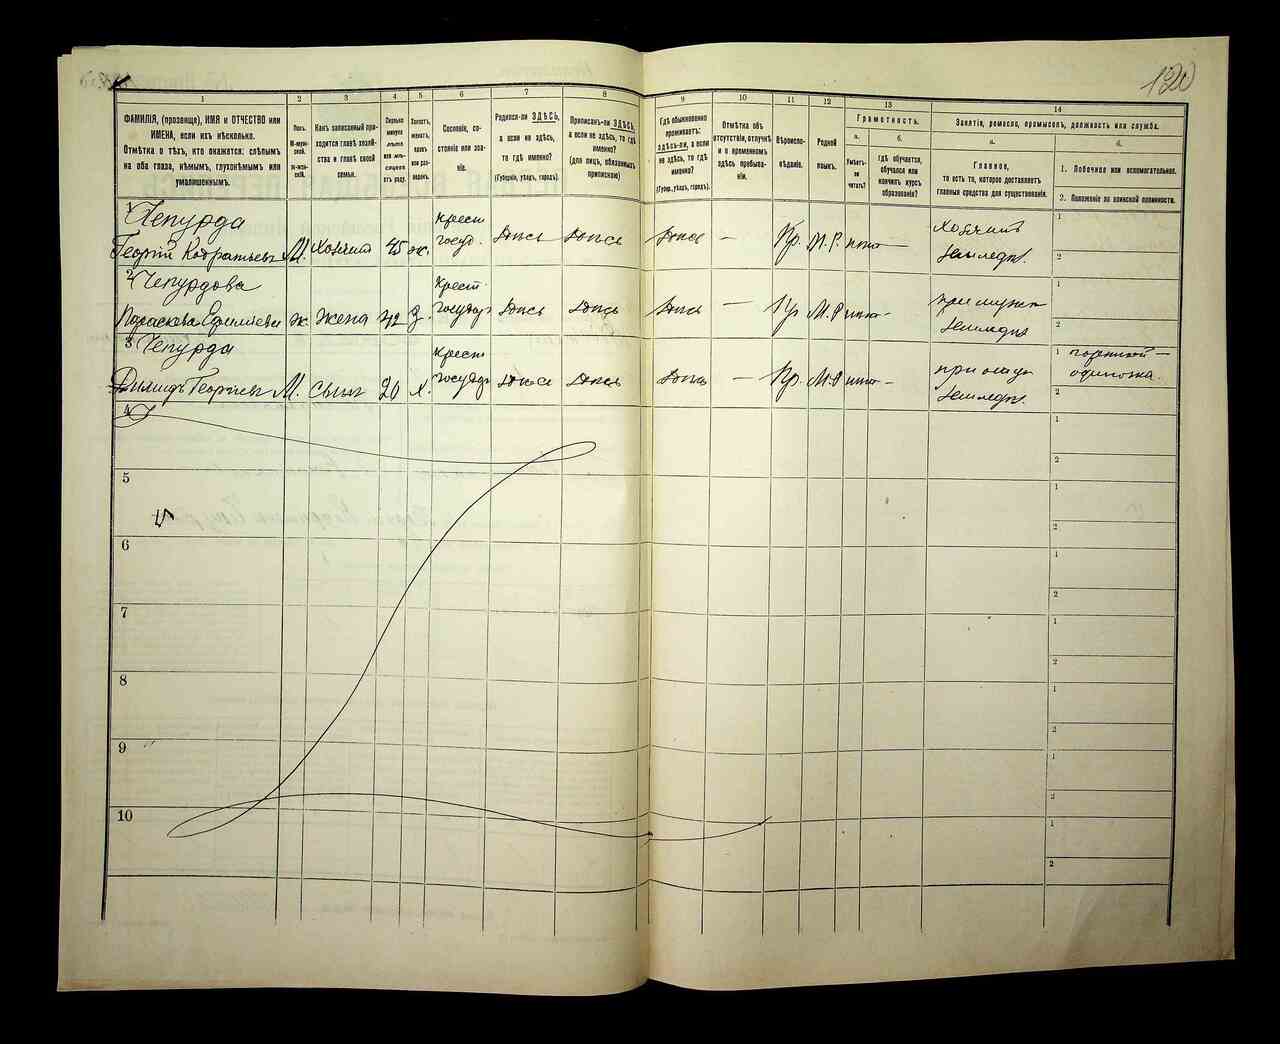 120
1
2
3
4
5
6
7
8
9
10
11
12
13
14
ФАМИЛІЯ, (прозвище), ИМЯ и ОТЧЕСТВО или
ИМЕНА, если ихъ нѣсколько.
Отмѣтка о тѣхъ, кто окажется: слѣпымъ
на оба глаза, нѣмымъ, глухонѣмымъ или
умалишеннымъ.
Полъ.
М-мужской.
Ж-женскій.
Какъ записанный приходится
главѣ хозяйства
и главѣ своей
семьи.
Сколько
минуло
лѣтъ
или мѣсяцевъ
отъ роду.
Холостъ,
женатъ,
вдовъ
или разведенъ.
Сословіе, состояніе
или званіе.
Родился-ли ЗДѢСЬ,
а если не здѣсь,
то гдѣ именно?
(Губернія, уѣздъ, городъ).
Приписанъ-ли ЗДѢСЬ,
а если не здѣсь, то гдѣ
именно?
(для лицъ, обязанныхъ
припискою)
Гдѣ обыкновенно
проживаетъ:
здѣсь-ли, а если
не здѣсь, то гдѣ
именно?
(Губер., уѣздъ, городъ).
Отмѣтка объ
отсутствіи, отлучкѣ
и о временномъ
здѣсь пребываніи.
Вѣроисповѣданіе.
Родной
языкъ.
Грамотность.
а.
Умѣетъ-ли
читать?
б.
Гдѣ обучается,
обучался или
кончилъ курсъ
образованія?
Занятія, ремесло, промыселъ, должность или служба.
а.
Главное,
то есть то, которое доставляетъ
главныя средства для существованія.
б.
1. Побочное или вспомогательное.
2. Положеніе по воинской повинности.
1
Чепурда
Георгій Кодратьевъ М. Хозяинъ 45 ж. Крест госуд. Здѣсь Здѣсь Здѣсь — Пр. М.Р. нѣтъ — Хозяинъ земледѣл.
1
2
2
Чепурдова
Параскева Ефимiева Ж Жена 42 З. Крест государ Здѣсь Здѣсь Здѣсь — Пр М.Р нѣтъ — при мужѣ земледѣл
1
2
3
Чепурда
Георгiевъ М. Сынъ 20 Х. Крест государ Здѣсь Здѣсь Здѣсь — Пр. М.Р нѣтъ — при отцѣ земледѣл.
1
одиночка.
2
4
1
2
5
1
2
6
1
2
7
1
2
8
1
2
9
1
2
10
1
2